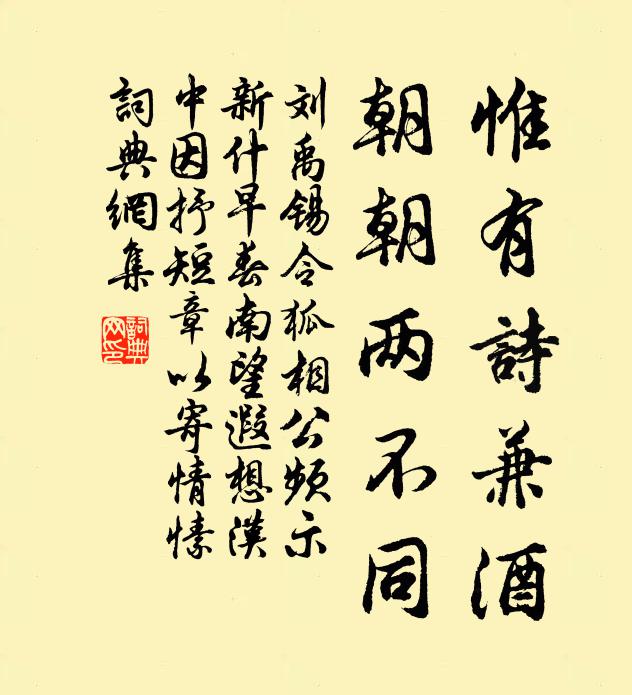 惟有詩兼酒
朝朝两不同
刘禹锡令狐相公频示
新什早春南望遐想漢
中因抒短章以寄情愫
詞典網集
詞典网印